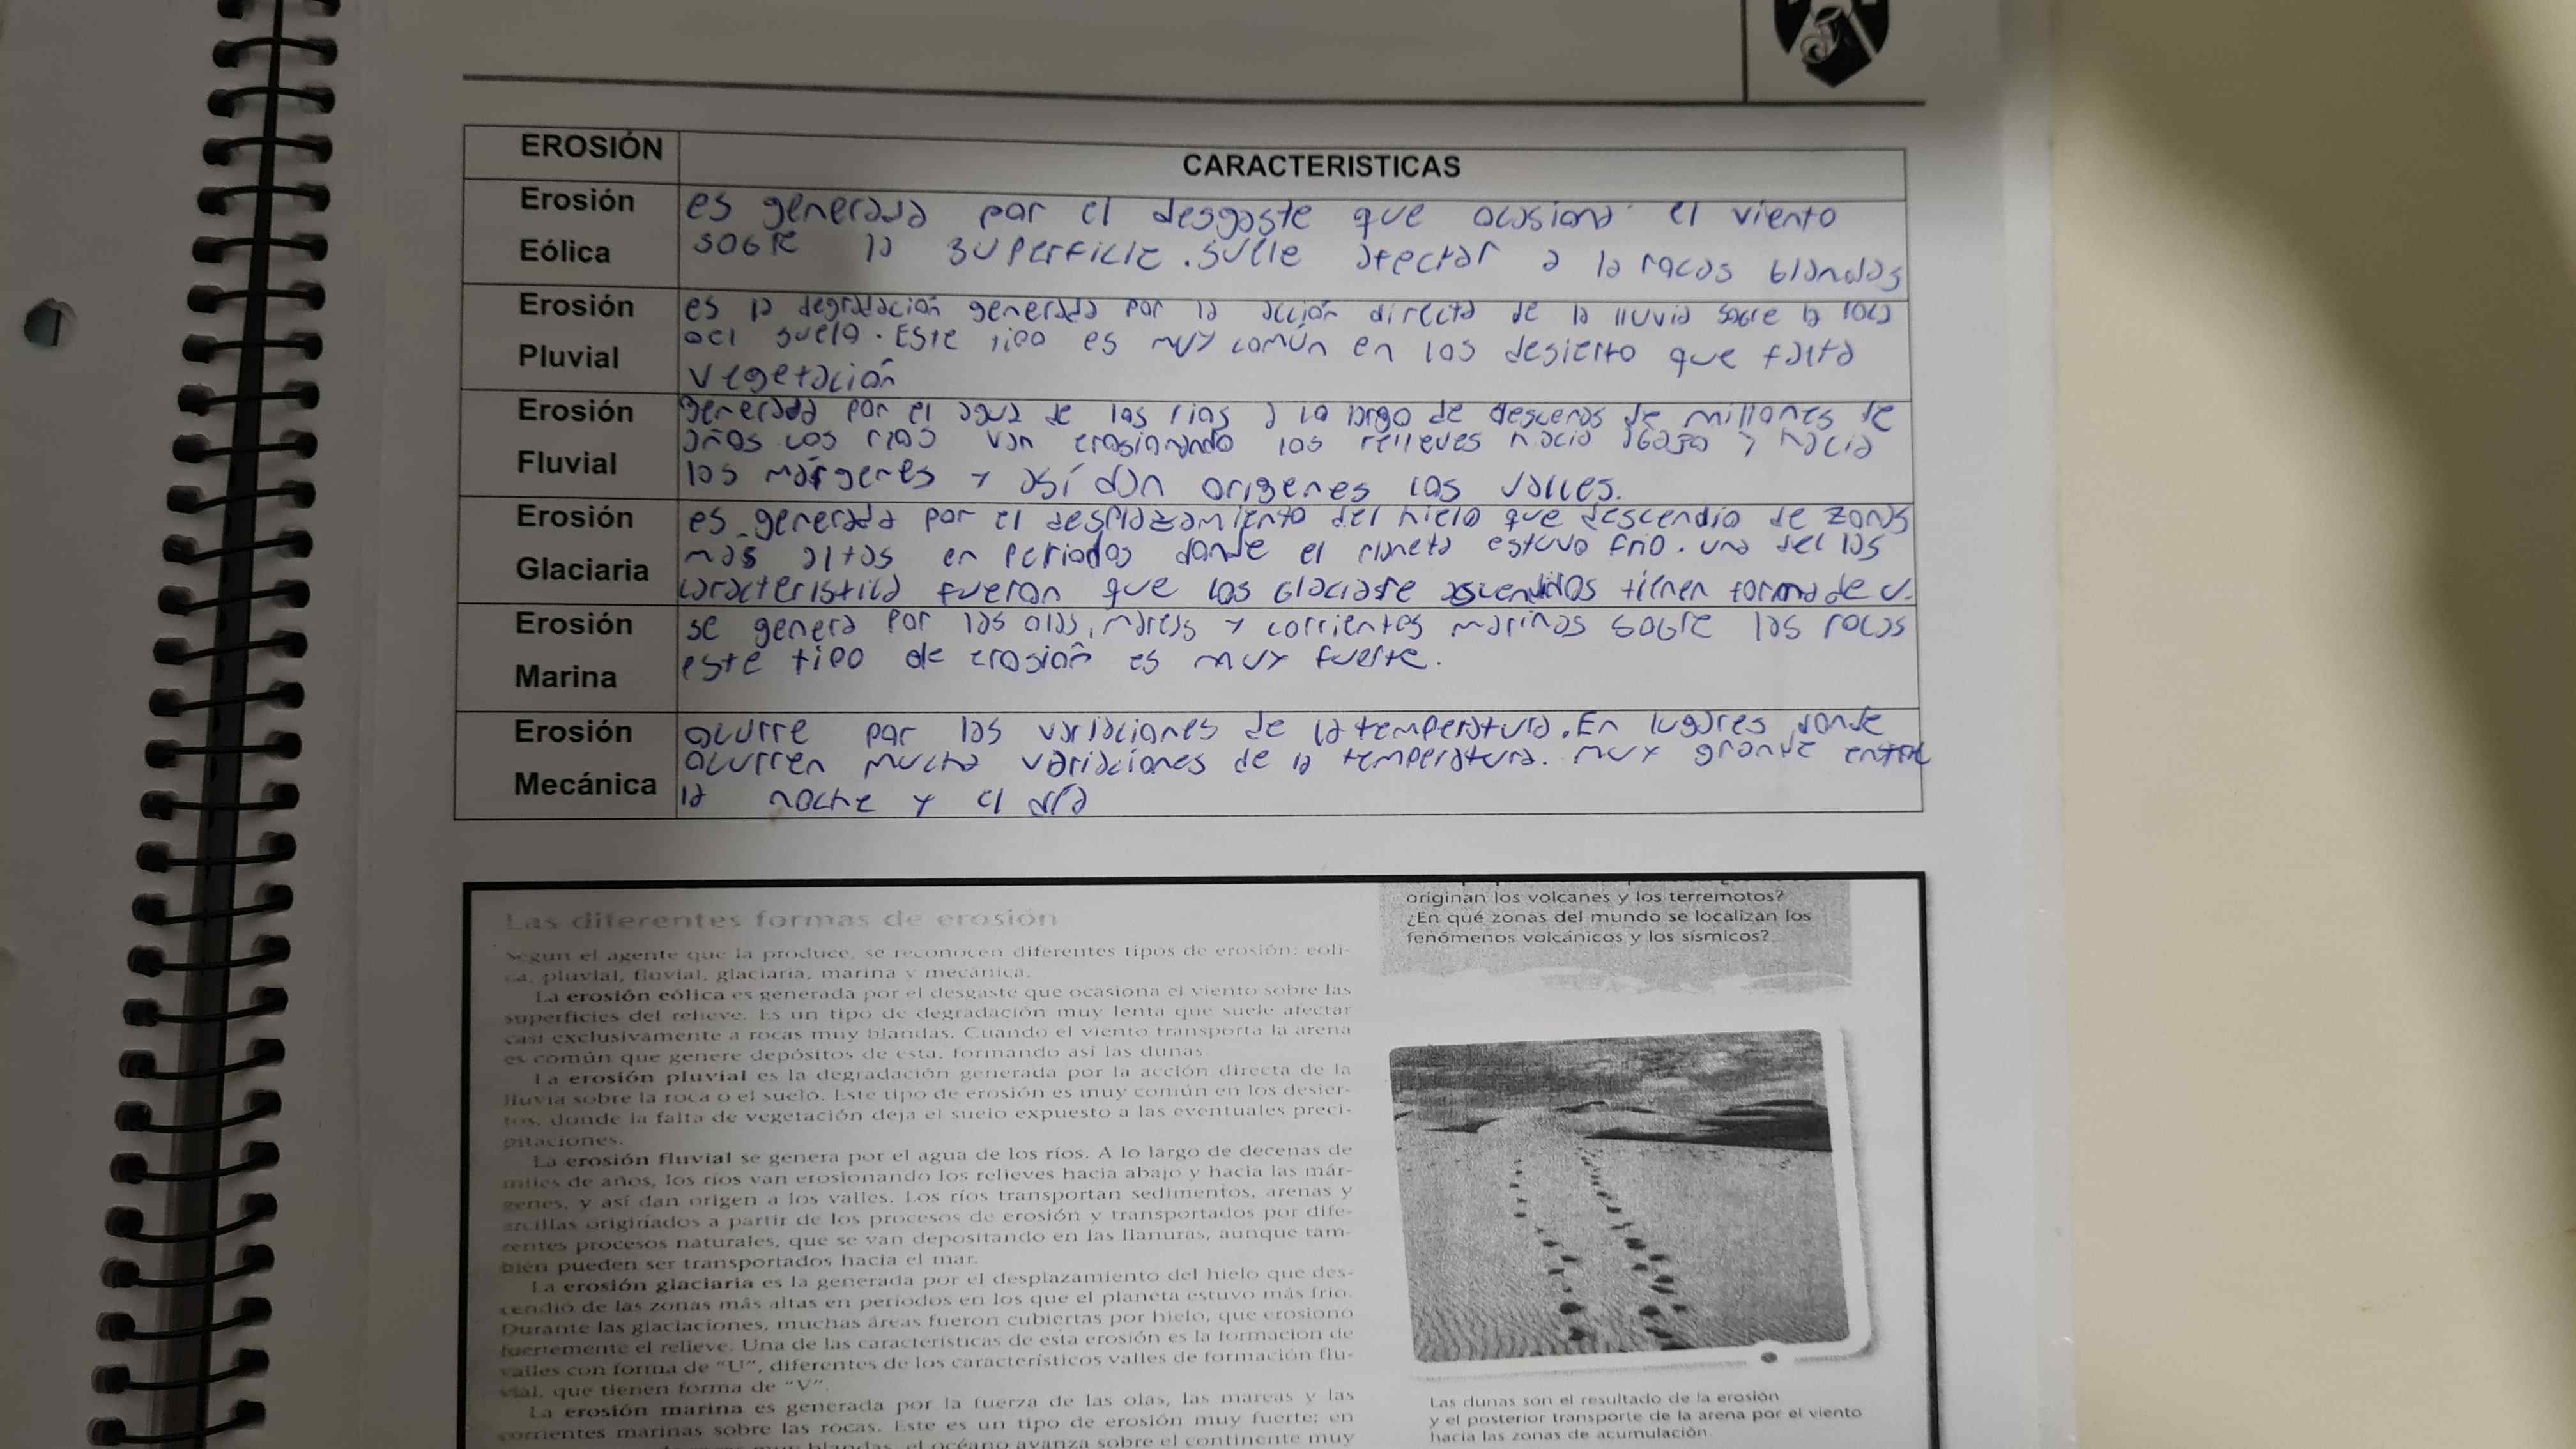 EROSIÓN
CARACTERISTICAS
Erosión
Eólica
es generada por el desgaste que ocasiona el viento
sobre la superficie. suele afectar a la rocas blandas
Erosión
Pluvial
es la degradación generada por la acción directa de la lluvia sobre la roca
del suelo. Este tipo es muy común en los desierto que falta
vegetación
Erosión
Fluvial
generada por el agua de los rios a lo largo de de millones de
años los rios van erosionando los relieves hacia abajo y hacia
los márgenes y así dan origenes los valles.
Erosión
Glaciaria
es generada por el desplazamiento del hielo que descendio de zonas
más altas en periodos donde el planeta estuvo frio. una del las
caracteristica fueron que los tienen forma de U.
Erosión
Marina
se genera por las olas, mareas y corrientes marinas sobre las rocas
este tipo de erosión es muy fuerte.
Erosión
Mecánica
ocurre por las variaciones de la temperatura. En lugares donde
ocurren mucha variaciones de la temperatura. muy grande entre
la noche y el día
Las diferentes formas de erosión
Según el agente que la produce, se reconocen diferentes tipos de erosión: eóli-
ca, pluvial, fluvial, glaciaria, marina y mecánica.
La erosión eólica es generada por el desgaste que ocasiona el viento sobre las
superficies del relieve. Es un tipo de degradación muy lenta que suele afectar
casi exclusivamente a rocas muy blandas. Cuando el viento transporta la arena
es común que genere depósitos de esta, formando así las dunas.
La erosión pluvial es la degradación generada por la acción directa de la
lluvia sobre la roca o el suelo. Este tipo de erosión es muy común en los desier-
tos, donde la falta de vegetación deja el suelo expuesto a las eventuales preci-
pitaciones.
La erosión fluvial se genera por el agua de los ríos. A lo largo de decenas de
miles de años, los ríos van erosionando los relieves hacia abajo y hacia las már-
genes, y así dan origen a los valles. Los ríos transportan sedimentos, arenas y
arcillas originados a partir de los procesos de erosión y transportados por dife-
rentes procesos naturales, que se van depositando en las llanuras, aunque tam-
bién pueden ser transportados hacia el mar.
La erosión glaciaria es la generada por el desplazamiento del hielo que des-
cendió de las zonas más altas en períodos en los que el planeta estuvo más frío.
Durante las glaciaciones, muchas áreas fueron cubiertas por hielo, que erosionó
fuertemente el relieve. Una de las características de esta erosión es la formación de
valles con forma de "U", diferentes de los característicos valles de formación flu-
vial, que tienen forma de "V".
La erosión marina es generada por la fuerza de las olas, las mareas y las
corrientes marinas sobre las rocas. Este es un tipo de erosión muy fuerte; en
blandas, el océano avanza sobre el continente muy
originan los volcanes y los terremotos?
¿En qué zonas del mundo se localizan los
fenómenos volcánicos y los sísmicos?
Las dunas son el resultado de la erosión
y el posterior transporte de la arena por el viento
hacia las zonas de acumulación.